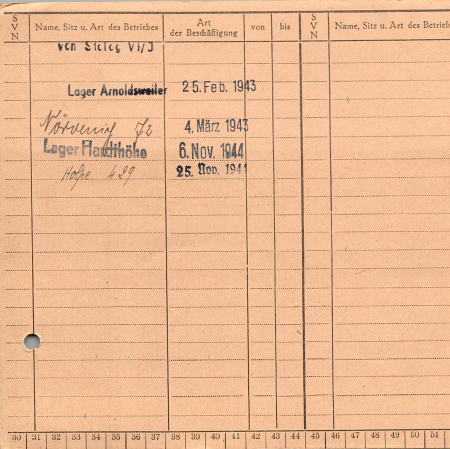 S V N Name, Sitz u. Art des Betriebes Art der Beschäftigung von bis S V N Name, Sitz u. Art des Betriebes
von Stalag VI/J
Lager Arnoldsweiler 25. Feb. 1943
Nörvenich 72 4. März 1943
Lager Hardthöhe 6. Nov. 1944
429 25. Nov. 1944
30 31 32 33 34 35 36 37 38 39 40 41 42 43 44 45 46 47 48 49 50 51